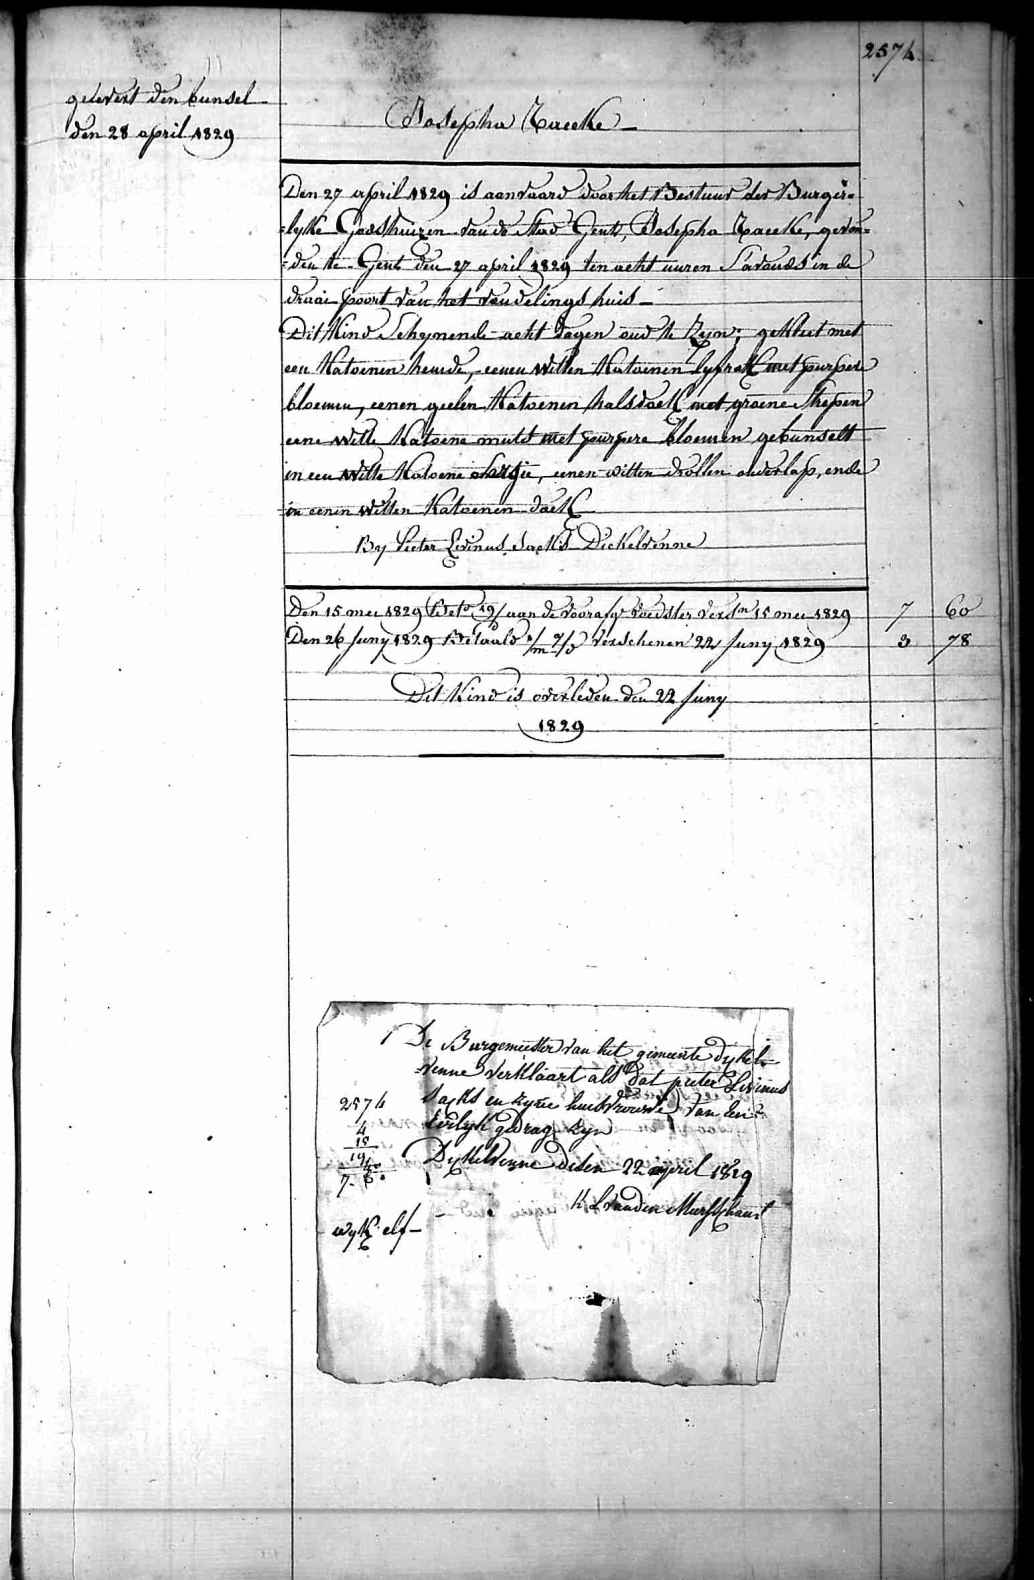 2574
gelevert den bunsel
den 28 april 1829
Josepha Raecke
Den 27 april 1829 is aanvaard door het Bestuur der Burger=
=lyke Godshuizen van de Stad Gent, Josepha Raecke, gevon=
=den te Gent den 27 april 1829 ten acht uuren S'avonds in de
draai poort van het vondelings huis
Dit Kind Schynende acht dagen oud te Zyn; gekleet met
een Katoenen hemde, eenen witten Katoenen lyfrok met purpere
bloemen, eenen geelen Katoenen halsdoek met groene strepen
eene witte Katoene muts met purpere bloemen gebunselt
in een witte Katoene sargie, eenen witten wollen overlap, ende
in eenen witten Katoenen doek
By Pieter Livinus Sackis Dickelvenne
Den 15 mei 1829 aan de voorsz voedster versn 15 mei 1829 7 60
Den 26 Juny 1829 betaald verschenen 22 Juny 1829 3 78
Dit Kind is overleden den 22 Juny
1829
De Burgemeester van het gemeente dykel=
=venne verklaart als dat pieter Livinus
Sacks en zyne huisvrouwe van een
Eerlyk gedrag zyn
Dykelvenne desen 22 april 1829
2574
4
15
19
7.60
wyk elf